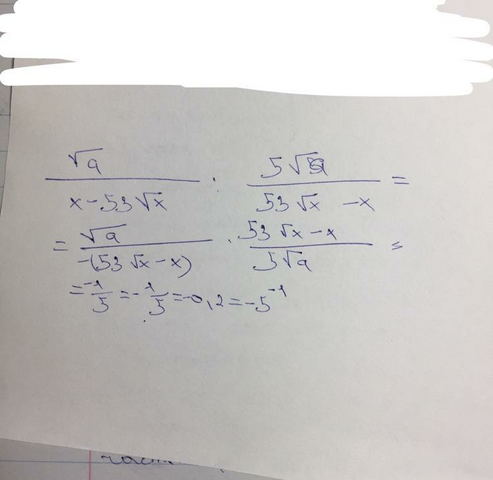 √a / (x - 53√x) : 5√a / (53√x - x) =
= √a / (-(53√x - x)) · (53√x - x) / (5√a) =
= -1/5 = -1/5 = -0,2 = -5⁻¹